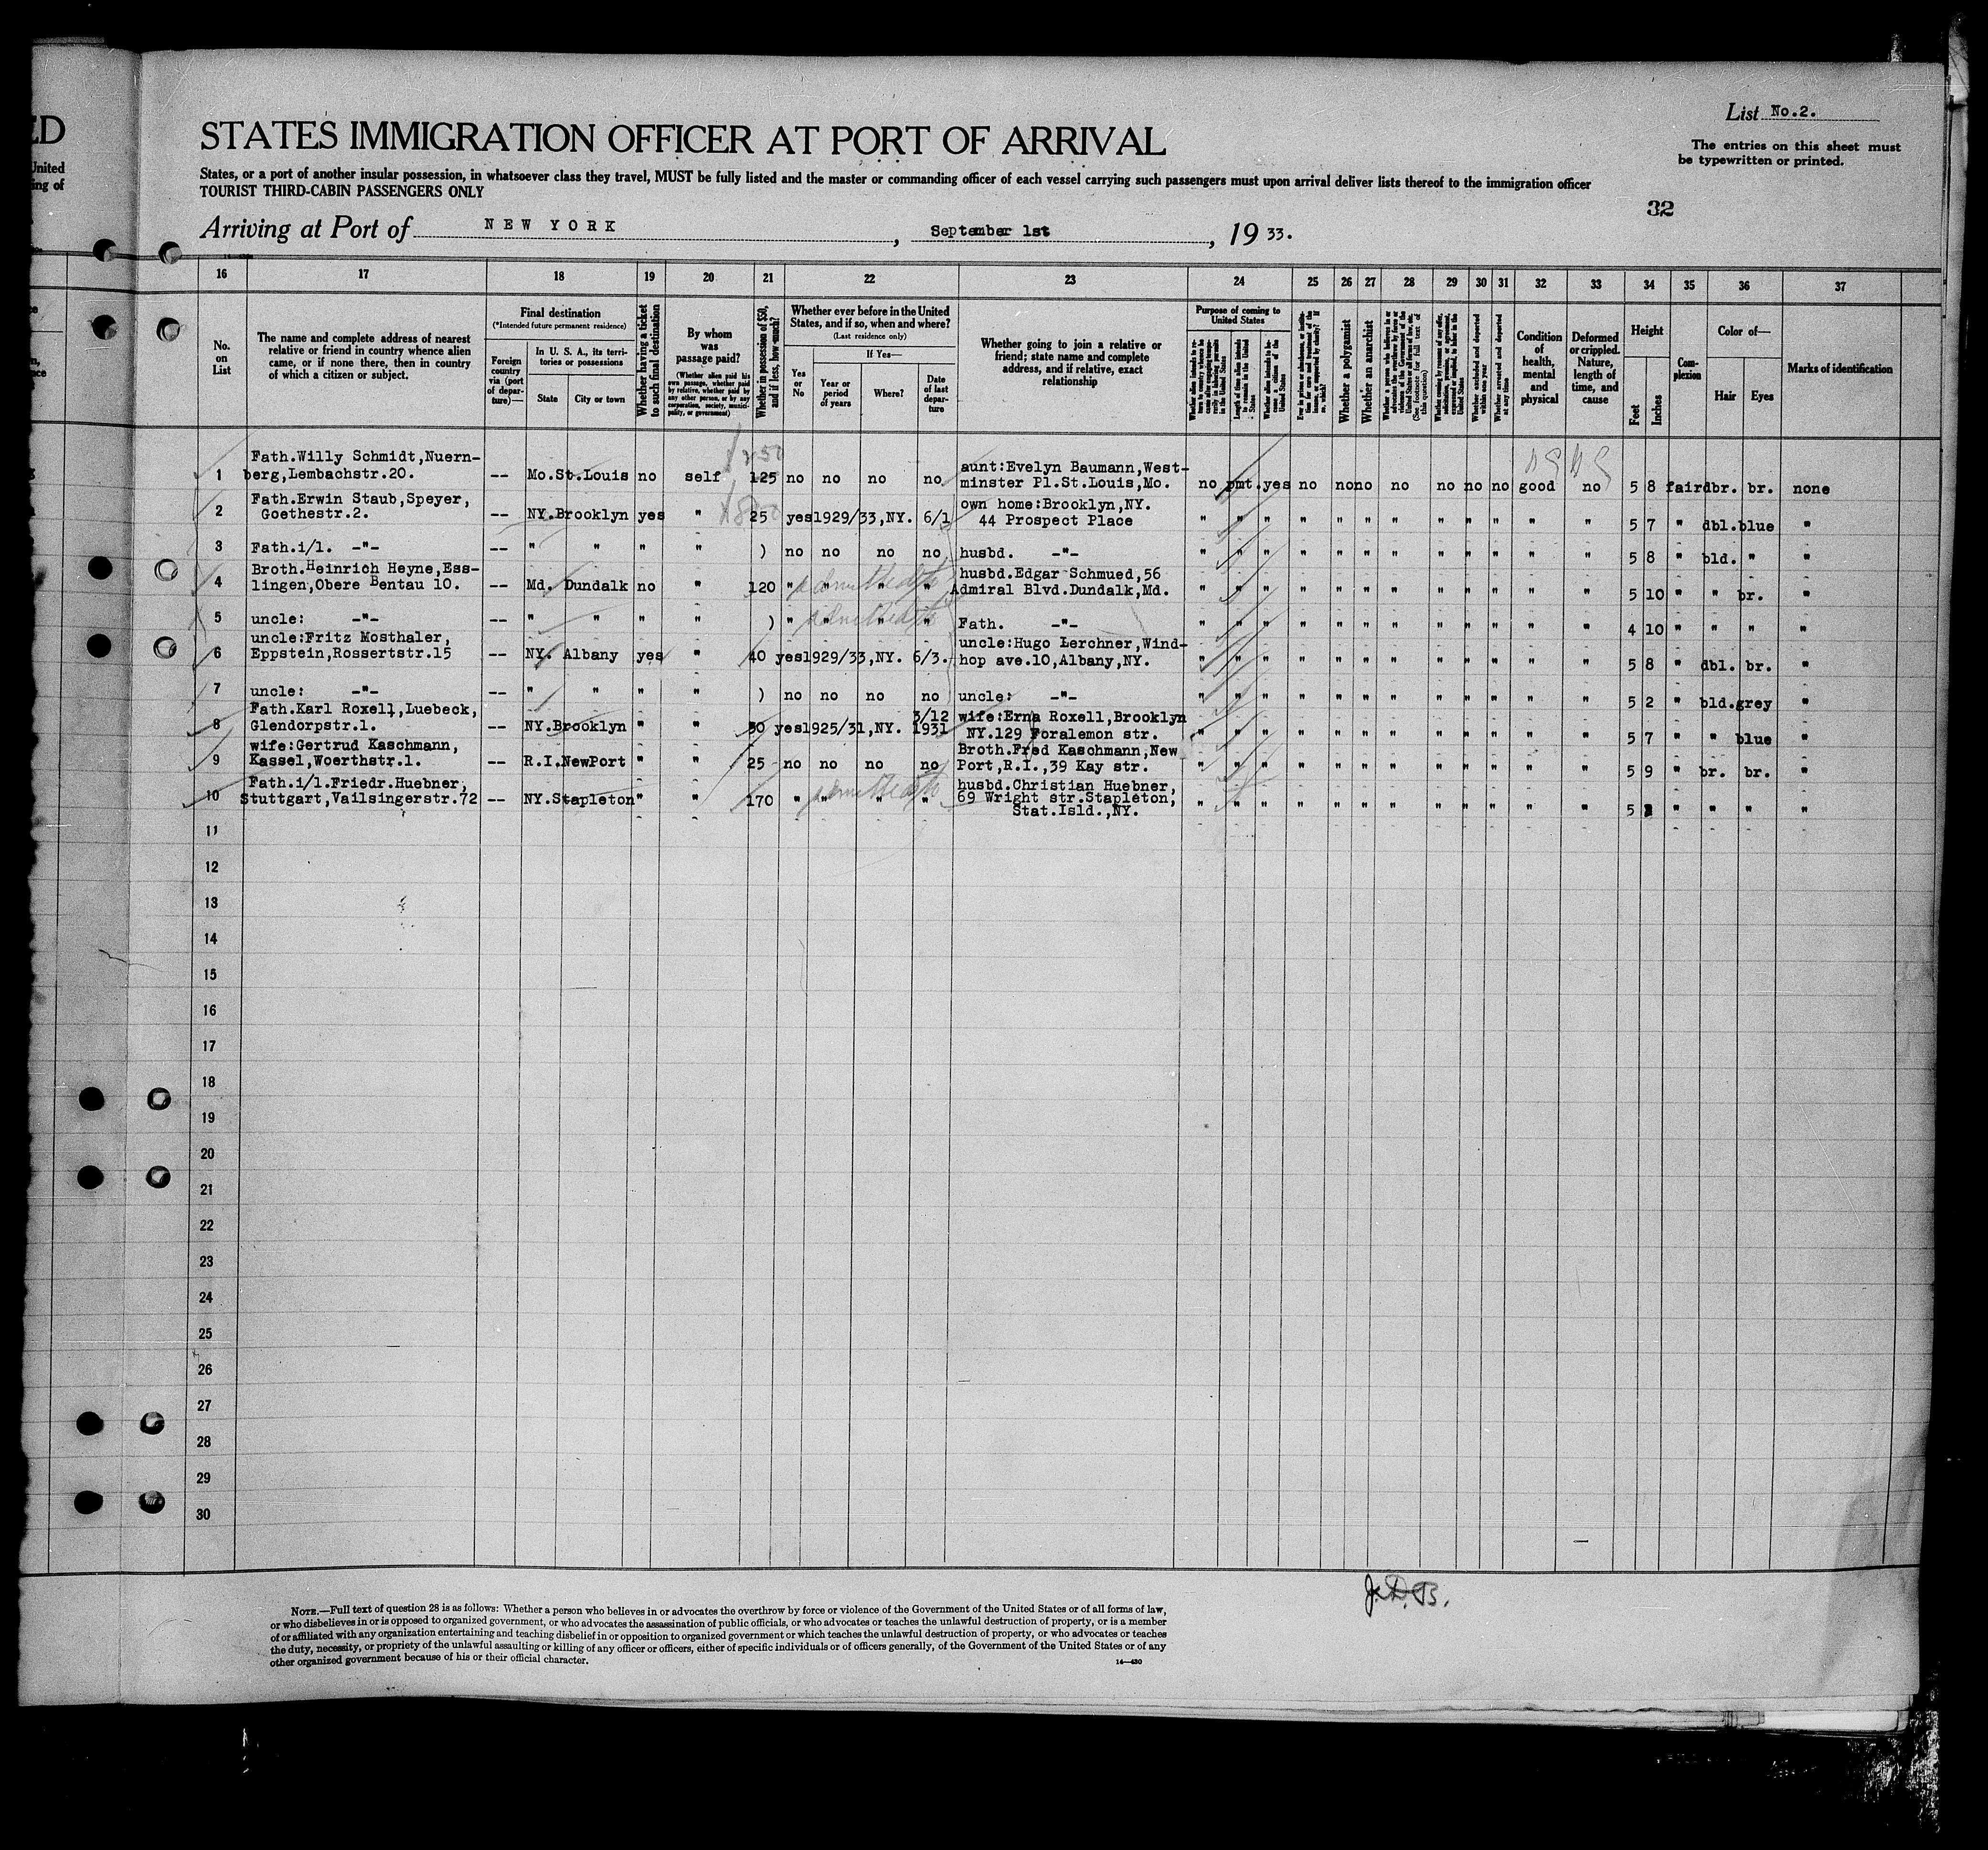 List No.2.
ED
STATES IMMIGRATION OFFICER AT PORT OF ARRIVAL
The entries on this sheet must
be typewritten or printed.
United
ing of
States, or a port of another insular possession, in whatsoever class they travel, MUST be fully listed and the master or commanding officer of each vessel carrying such passengers must upon arrival deliver lists thereof to the immigration officer
TOURIST THIRD-CABIN PASSENGERS ONLY
32
Arriving at Port of NEW YORK, September 1st, 1933.
16 17 18 19 20 21 22 23 24 25 26 27 28 29 30 31 32 33 34 35 36 37
No.
on
List
The name and complete address of nearest
relative or friend in country whence alien
came, or if none there, then in country
of which a citizen or subject.
Final destination
(*Intended future permanent residence)
Foreign
country
via (port
of depar-
ture)—
In U. S. A., its terri-
tories or possessions
State City or town
Whether having a ticket
to such final destination
By whom
was
passage paid?
(Whether alien paid his
own passage, whether paid
by relative, whether paid by
any other person, or by any
corporation, society, munici-
pality, or government)
Whether in possession of $50,
and if less, how much?
Whether ever before in the United
States, and if so, when and where?
(Last residence only)
Yes
or
No
If Yes—
Year or
period
of years
Where?
Date
of last
depar-
ture
Whether going to join a relative or
friend; state name and complete
address, and if relative, exact
relationship
Purpose of coming to
United States
Whether a polygamist
Whether an anarchist
Whether excluded and deported
within one year
Whether arrested and deported
at any time
Condition
of
health,
mental
and
physical
Deformed
or crippled.
Nature,
length of
time, and
cause
Height
Feet
Inches
Com-
plexion
Color of—
Hair Eyes
Marks of identification
1 Father.Willy Schmidt,Nuern-
berg,Lembachstr.20. -- Mo.St.Louis no self 125 no no no no aunt:Evelyn Baumann,West-
minster Pl.St.Louis,Mo. no pmt.yes no no no no no no no good no 5 8 fair dbr. br. none
2 Fath.Erwin Staub,Speyer,
Goethestr.2. -- NY.Brooklyn yes " 25 yes 1929/33,NY. 6/1 own home:Brooklyn,NY.
44 Prospect Place " " " " " " " " " " " " 5 7 " dbl. blue "
3 Fath.i/l. -"- -- " " " " ) no no no no husbd. -"- " " " " " " " " " " " " 5 8 " bld. " "
4 Broth.Heinrich Heyne,Ess-
lingen,Obere Bentau 10. -- Md. Dundalk no " 120 " " " " husbd.Edgar Schmued,56
Admiral Blvd.Dundalk,Md. " " " " " " " " " " " " 5 10 " " br. "
5 uncle: -"- -- " " " " ) " " " " Fath. -"- " " " " " " " " " " " " 4 10 " " " "
6 uncle:Fritz Mosthaler,
Eppstein,Rossertstr.15 -- NY. Albany yes " 40 yes 1929/33,NY. 6/3. uncle:Hugo Lerchner,Wind-
hop ave.10,Albany,NY. " " " " " " " " " " " " 5 8 " dbl. br. "
7 uncle: -"- -- " " " " ) no no no no uncle: -"- " " " " " " " " " " " " 5 2 " bld. grey "
8 Fath.Karl Roxell,Luebeck,
Glendorpstr.1. -- NY.Brooklyn " " 30 yes 1925/31,NY. 3/12
1931 wife:Erna Roxell,Brooklyn
NY.129 Foralemon str. " " " " " " " " " " " " 5 7 " " blue "
9 wife:Gertrud Kaschmann,
Kassel,Woerthstr.1. -- R.I.NewPort " " 25 no no no no Broth.Fred Kaschmann,New
Port,R.I.,39 Kay str. " " " " " " " " " " " " 5 9 " br. br. "
10 Fath.i/l.Friedr.Huebner,
Stuttgart,Vailsingerstr.72 -- NY.Stapleton " " 170 " " " " husbd.Christian Huebner,
69 Wright str.Stapleton,
Stat.Isld.,NY. " " " " " " " " " " " " 5 " " " "
11
12
13
14
15
16
17
18
19
20
21
22
23
24
25
26
27
28
29
30
J.D.B.
NOTE.—Full text of question 28 is as follows: Whether a person who believes in or advocates the overthrow by force or violence of the Government of the United States or of all forms of law,
or who disbelieves in or is opposed to organized government, or who advocates the assassination of public officials, or who advocates or teaches the unlawful destruction of property, or is a member
of or affiliated with any organization entertaining and teaching disbelief in or opposition to organized government or which teaches the unlawful destruction of property, or who advocates or teaches
the duty, necessity, or propriety of the unlawful assaulting or killing of any officer or officers, either of specific individuals or of officers generally, of the Government of the United States or of any
other organized government because of his or their official character.
14—430